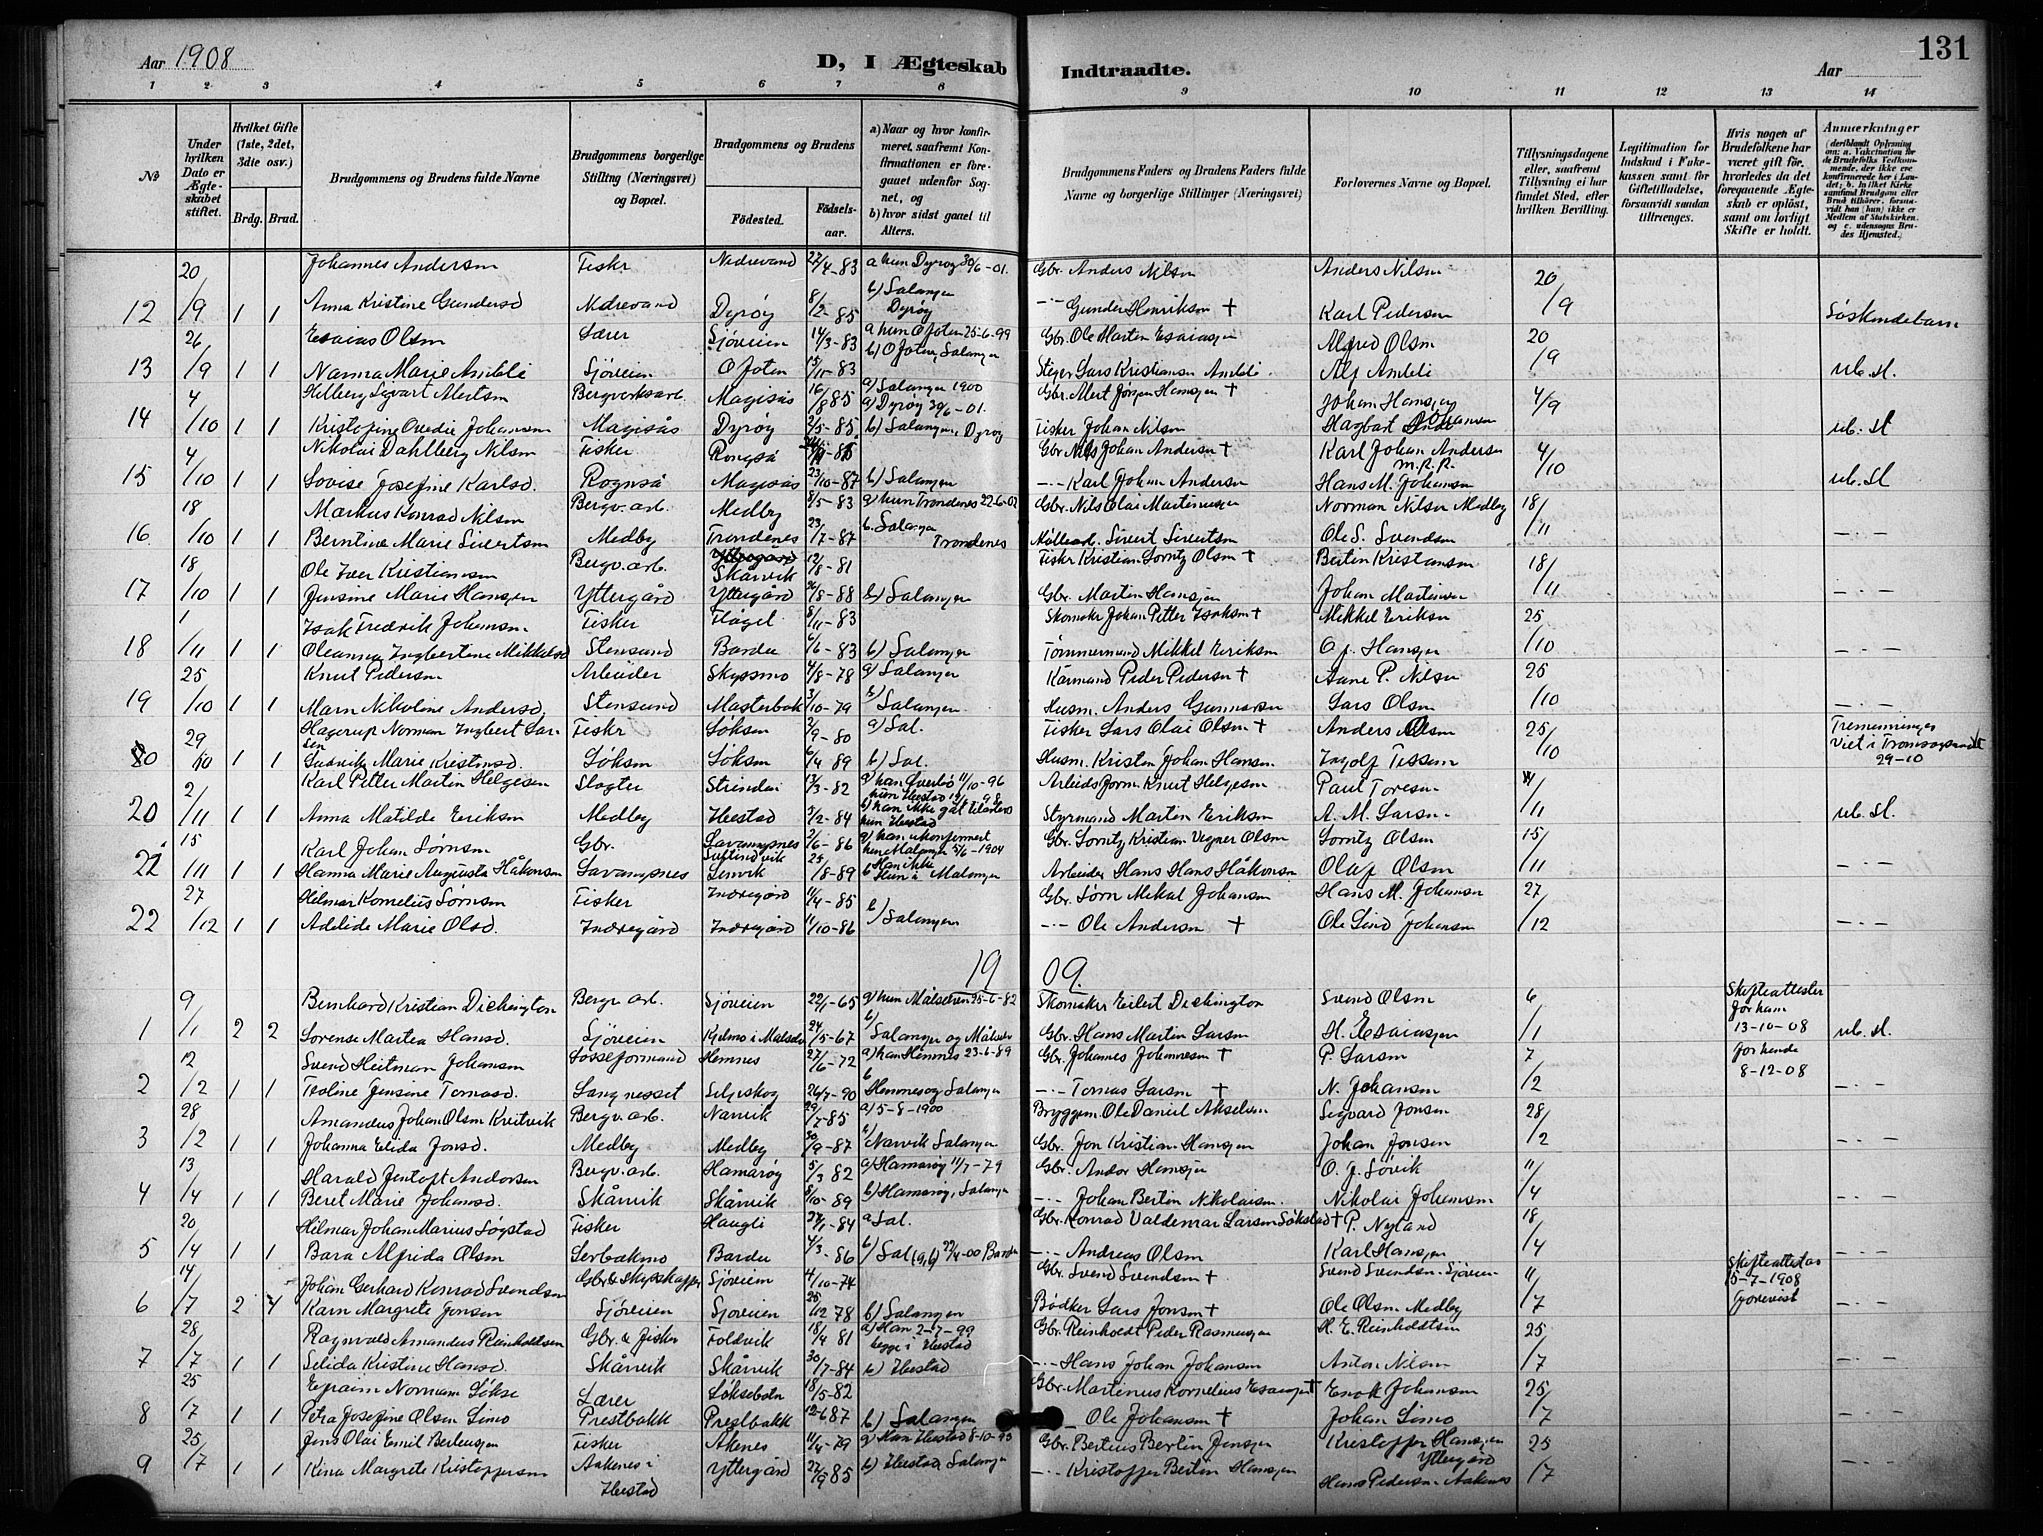 Aar 1908
D, I Ægteskab Indtraadte.
Aar
131
1 2 3 4 5 6 7 8 9 10 11 12 13 14
No
Under hvilken Dato er Ægteskabet stiftet.
Hvilket Gifte (1ste, 2det, 3die osv.)
Brdg. Brud.
Brudgommens og Brudens fulde Navne
Brudgommens borgerlige Stilling (Næringsvei) og Bopæl.
Brudgommens og Brudens
Fødested. Fødsels-aar.
a) Naar og hvor konfirmeret, saafremt Konfirmationen er foregaaet udenfor Sognet, og
b) hvor sidst gaaet til Alters.
Brudgommens Faders og Brudens Faders fulde Navne og borgerlige Stillinger (Næringsvei)
Forlovernes Navne og Bopæl.
Tillysningsdagene eller, saafremt Tillysning ei har fundet Sted, efter hvilken Bevilling.
Legitimation for Indskud i Enkekassen samt for Giftetilladelse, forsaavidt saadan tiltrænges.
Hvis nogen af Brudefolkene har været gift før, hvorledes da det foregaaende Ægteskab er opløst, samt om lovligt Skifte er holdt.
Anmærkninger
20 Johannes Andersen Fisker Nedrevand 27/4-83 a hun Dyrøy 30/6-01. Gbr. Anders Nilsen Anders Nilsen 20
12 /9 1 1 Anna Kristine Gundersd Nedrevand Dyrøy 8/2-85 b) Salangen Dyrøy -"- Gunder Henriksen † Karl Pedersen /9 Søskendebarn
26 Esaias Olsen Lærer Sjøveien 14/3-83 a hun Ofoten 25-6-99 Gbr. Ole Martin Esaiassen Alfred Olsen 20
13 /9 1 1 Nanna Marie Amdli Sjøveien Ofoten 15/11-83 b) Ofoten, Salangen Stiger Lars Kristiansen Amdli Alf Amdli /9 ub. sl.
4 Hilberg Sigvart Mertsen Bergverksarb. Magisås 16/8 85 a) Salangen 1900 Gbr. Mert Jørgen Hansen † Johan Hansen 4/9
14 /10 1 1 Kristofine Ovedie Johansen Magisås Dyrøy 2/5-85 a) Dyrøy 30/6-01. b) Salangen, Dyrøy Fisker Johan Nilsen Hagbart Johansen ub. sl
4 Nikolai Dahlberg Nilsen Fisker Rongså Gbr. Nils Johan Andersen † Karl Johan Andersen 4
15 /10 1 1 Lovise Josefine Karlsd. Rognså Magisås 23/10-87 b) Salangen -"- Karl Johan Andersen Hans M. Johansen /10 ub. sl
18 Markus Konrad Nilsen Bergv. arb. Medby 8/5-83 a) hun Trondenes 22-6-02 Gbr. Nils Olai Martinussen Norman Nilsen Medby 18/
16 /10 1 1 Berntine Marie Sivertsen Medby Trondenes 23/7-87 b. Salangen Trondenes Sivert Sivertsen Ole S. Svendsen /11 -"-
18 Ole Iver Kristiansen Bergv. arb. Skårvik 12/8-81 Fisker Kristian Lorntz Olsen † Bertin Kristiansen 18/
17 /10 1 1 Jensine Marie Hansen Yttergård Yttergård /8-88 b) Salangen Gbr. Martin Hansen Johan Martinsen /11 -"-
1 Isak Fredrik Johansen. Fisker Flagel 8/11-83 Skomaker Johan Petter Isaksen † Mikkel Eriksen 25
18 /11 1 1 Oleanna Ingbertine Mikkelsd Stensund Bardu 6/6-83 b) Salangen Tømmermand Mikkel Eriksen O. J. Hansen /10 -"-
25 Knut Pedersen Arbeider Skyssmo 4/8-78 a) Salangen Kårmand Peder Pedersen † Aane P. Nilsen 25
19 /10 1 1 Maren Nikoline Andersd. Stensund Masterbak 3/10-79 b) Salangen Husm. Anders Gunnarsen Lars Olsen /10 -"-
29 Hagerup Norman Ingbert Larsen Fisker Løksen 2/9-80 a) Sal. Fisker Lars Olai Olsen † Anders Olsen 25/ Tremenninger
20 /10 1 1 Ludvikke Marie Kristensd. Løksen Løksen 6/4 89 b) Sal. Husm. Kristen Johan Hansen. Ingolf Tessem /10 Viet i Tromsøysundet 29-10
2 Karl Petter Martin Helgesen Slagter Strinden 13/3-82 a) han Øverbø 11/10-96 hun Ibestad Arbeidsform. Knut Helgesen Paul Toresen
20 /11 1 1 Anna Matilde Eriksen Medby Ibestad 2/2-84 b) han ikke gåt tilalters hun Ibestad Styrmand Martin Eriksen A. M. Larsen. /11 ub. sl.
15 Karl Johan Sørnsen Gbr. Lavangsnes 2/6-86 a) han ukonfirmert hun Malangen 5/6-1904 Gbr. Lorntz Kristian Vegner Olsen Lorntz Olsen 15/
21 /11 1 1 Hanna Marie Augusta Håkonsen Lavangsnes Lenvik 25/8-89 b Han ikke Hun i Malangen Arbeider Hans Hans Håkonsen Olaf Olsen /11 -"-
27 Hilmar Kornelius Sørnsen Fisker Indregård 11/4-85 Gbr. Sørn Mikal Johansen Hans M. Johansen 27
22 /12 1 1 Adelide Marie Olsd. Indregård Indregård 11/10-86 b) Salangen -"- Ole Andersen † Ole Lind Johansen /12 -"-
1909.
9 Bernhard Kristian Dickington Bergv. arb. Sjøveien 22/1-65 a) hun Målselven 25-6-82 Skomaker Eilert Dickington Svend Olsen 6 Skifteattester for ham 13-10-08
1 /1 2 2 Lorense Martea Hansd. Sjøveien Kjelmo i Målselv 24/5-67 b) Salangen og Målselv Gbr. Hans Martin Larsen H. Esaiassen /1 for hende 8-12-08 ub. sl.
12 Svend Heitman Johansen Losseformand Hemnes 27/6-72 a) han Hemnes 23-6-89 Gbr. Johannes Johannesen † P. Larsen 7
2 /2 1 1 Teoline Jensine Tomasd. Langnesset Seljeskog 26/7-90 b Hemnes og Salangen -"- Tomas Larsen † N. Johansen /2 -"-
28 Amandus Johan Olsen Kvitvik Bergv. arb. Narvik 29/7-85 a) 5-8-1900 Bryggem. Ole Daniel Akselsen Sigvard Jensen 28/
3 /2 1 1 Johanna Elida Jonsd. Medby Medby 30/9-87 b) Narvik Salangen Gbr. Jon Kristian Hansen Johan Jensen /2 -"-
13 Harald Jentoft Andorsen Bergv. arb. Hamarøy 5/3 82 a) Hamarøy 11/7-79 Gbr. Andor Hansen O. J. Løvik 11/
4 /4 1 1 Beret Marie Johansd. Skårvik Skårvik 8/10-89 b) Hamarøy, Salangen -"- Johan Bertin Nikolaisen. Nikolai Johansen /4 -"-
20 Hilmar Johan Marius Løgstad Fisker Haugli 27/1-84 a Sal. Gbr. Konrad Valdemar Larsen Løkstad † P. Nyland 18
5 /4 1 1 Bara Alfrida Olsen Lerbakmo Bardu 4/3-86 b) Sal (a, b) 22/4-00 Bardu -"- Andreas Olsen Karl Hansen /4 -"-
14 Johan Gerhard Konrad Svendsen Gbr. & Skysskaffer Sjøveien 4/10-74 Gbr. Svend Svendsen † Svend Svendsen. Sjøveien 11/ Skifteattest av 15-7-1908
6 /7 2 4 Karn Margrete Jensen Sjøveien Sjøveien 25/12 78 b) Salangen Bødker Lars Jensen † Ole Olsen Medby /7 forevist -"-
28 Ragnvald Amandus Reinholdtsen Gbr. & fisker Foldvik 18/4 81 a) Han 2-7-99 begge i Ibestad Gbr. Reinholdt Peder Rasmussen H. E. Reinholdtsen 25
7 /7 1 1 Selida Kristine Hansd. Skårvik Skårvik 30/7-84 b) Ibestad -"- Hans Johan Johansen Anton Nilsen /7 -"-
25 Efraim Norman Løkse Lærer Løksebotn 18/5-82 Gbr. Martinus Kornelius Esaiassen † Enok Johansen 25/
8 /7 1 1 Petra Josefine Olsen Limo Prestbakk Prestbakk 12-6 87 b) Salangen -"- Ole Johansen † Johan Limo /7 -"-
25 Jens Olai Emil Berteusen Fisker Åkenes 11/4-79 a) Han Ibestad 8-10-93 Gbr. Bertius Bertin Jensen Kristoffer Hansen Yttergård 25
9 /7 1 1 Kina Margrete Kristoffersen Aakenes i Ibestad Yttergård 27/9 85 b) Ibestad, Salangen -"- Kristoffer Bertin Hansen Hans Pedersen. Aakenes /7 -"-